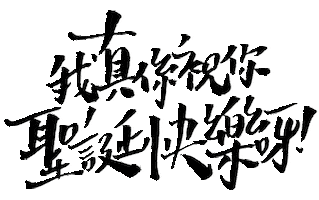 我真係祝你
聖誕快樂呀!